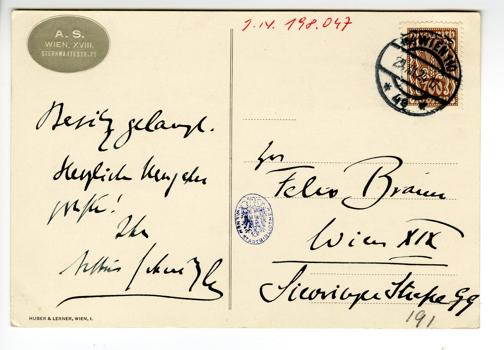 A. S.
WIEN, XVIII.
STERNWARTESTR. 71
I.N. 198.047
Besitz gelangt.
Herzliche Neujahrs
grüße!
Ihr
Arthur Schnitzler
Felix Braun
Wien XIX
Sieveringer Straße
191
HUBER & LERNER, WIEN, I.